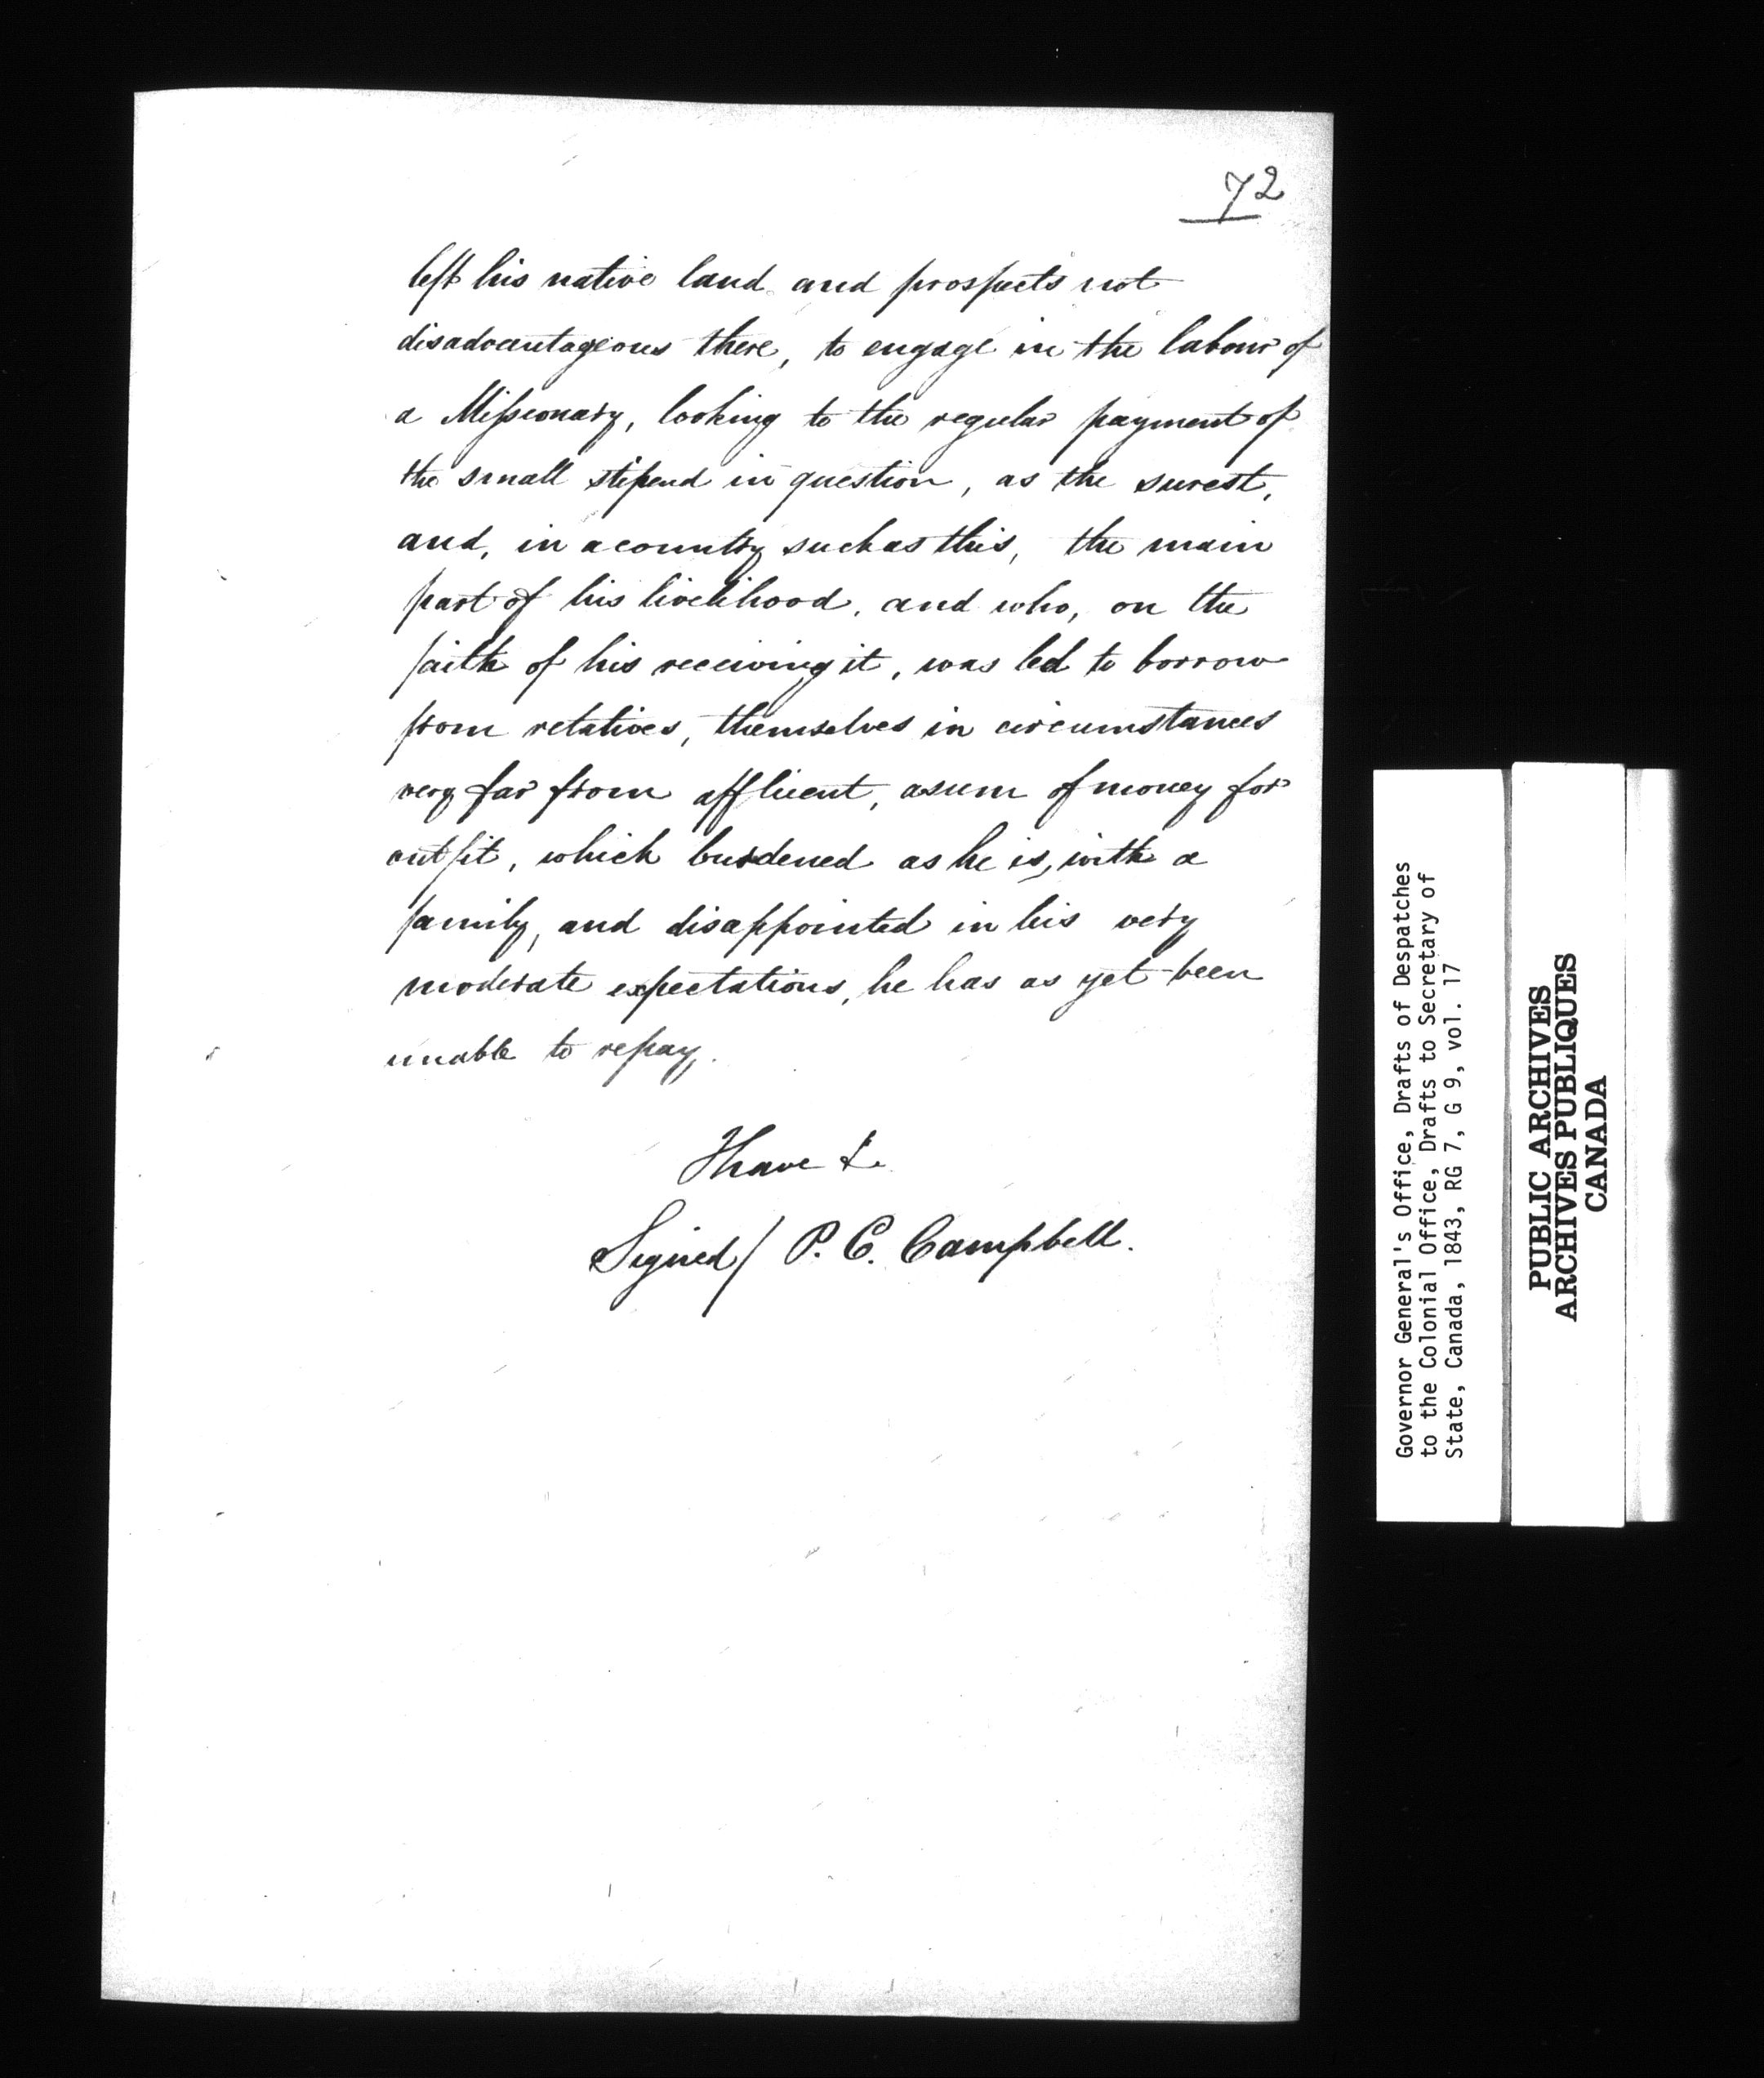 72
left his native land and prospects not
disadvantageous there, to engage in the labour of
a Missionary, looking to the regular payment of
the small stipend in question, as the surest,
and, in a country such as this, the main
part of his livelihood, and who, on the
faith of his receiving it, was led to borrow
from relatives, themselves in circumstances
very far from affluent, a sum of money for
outfit, which burdened as he is, with a
family, and disappointed in his very
moderate expectations, he has as yet been
unable to repay.
I have &c
Signed/ P. C. Campbell.
Governor General's Office, Drafts of Despatches
to the Colonial Office, Drafts to Secretary of
State, Canada, 1843, RG 7, G 9, vol. 17
PUBLIC ARCHIVES
ARCHIVES PUBLIQUES
CANADA